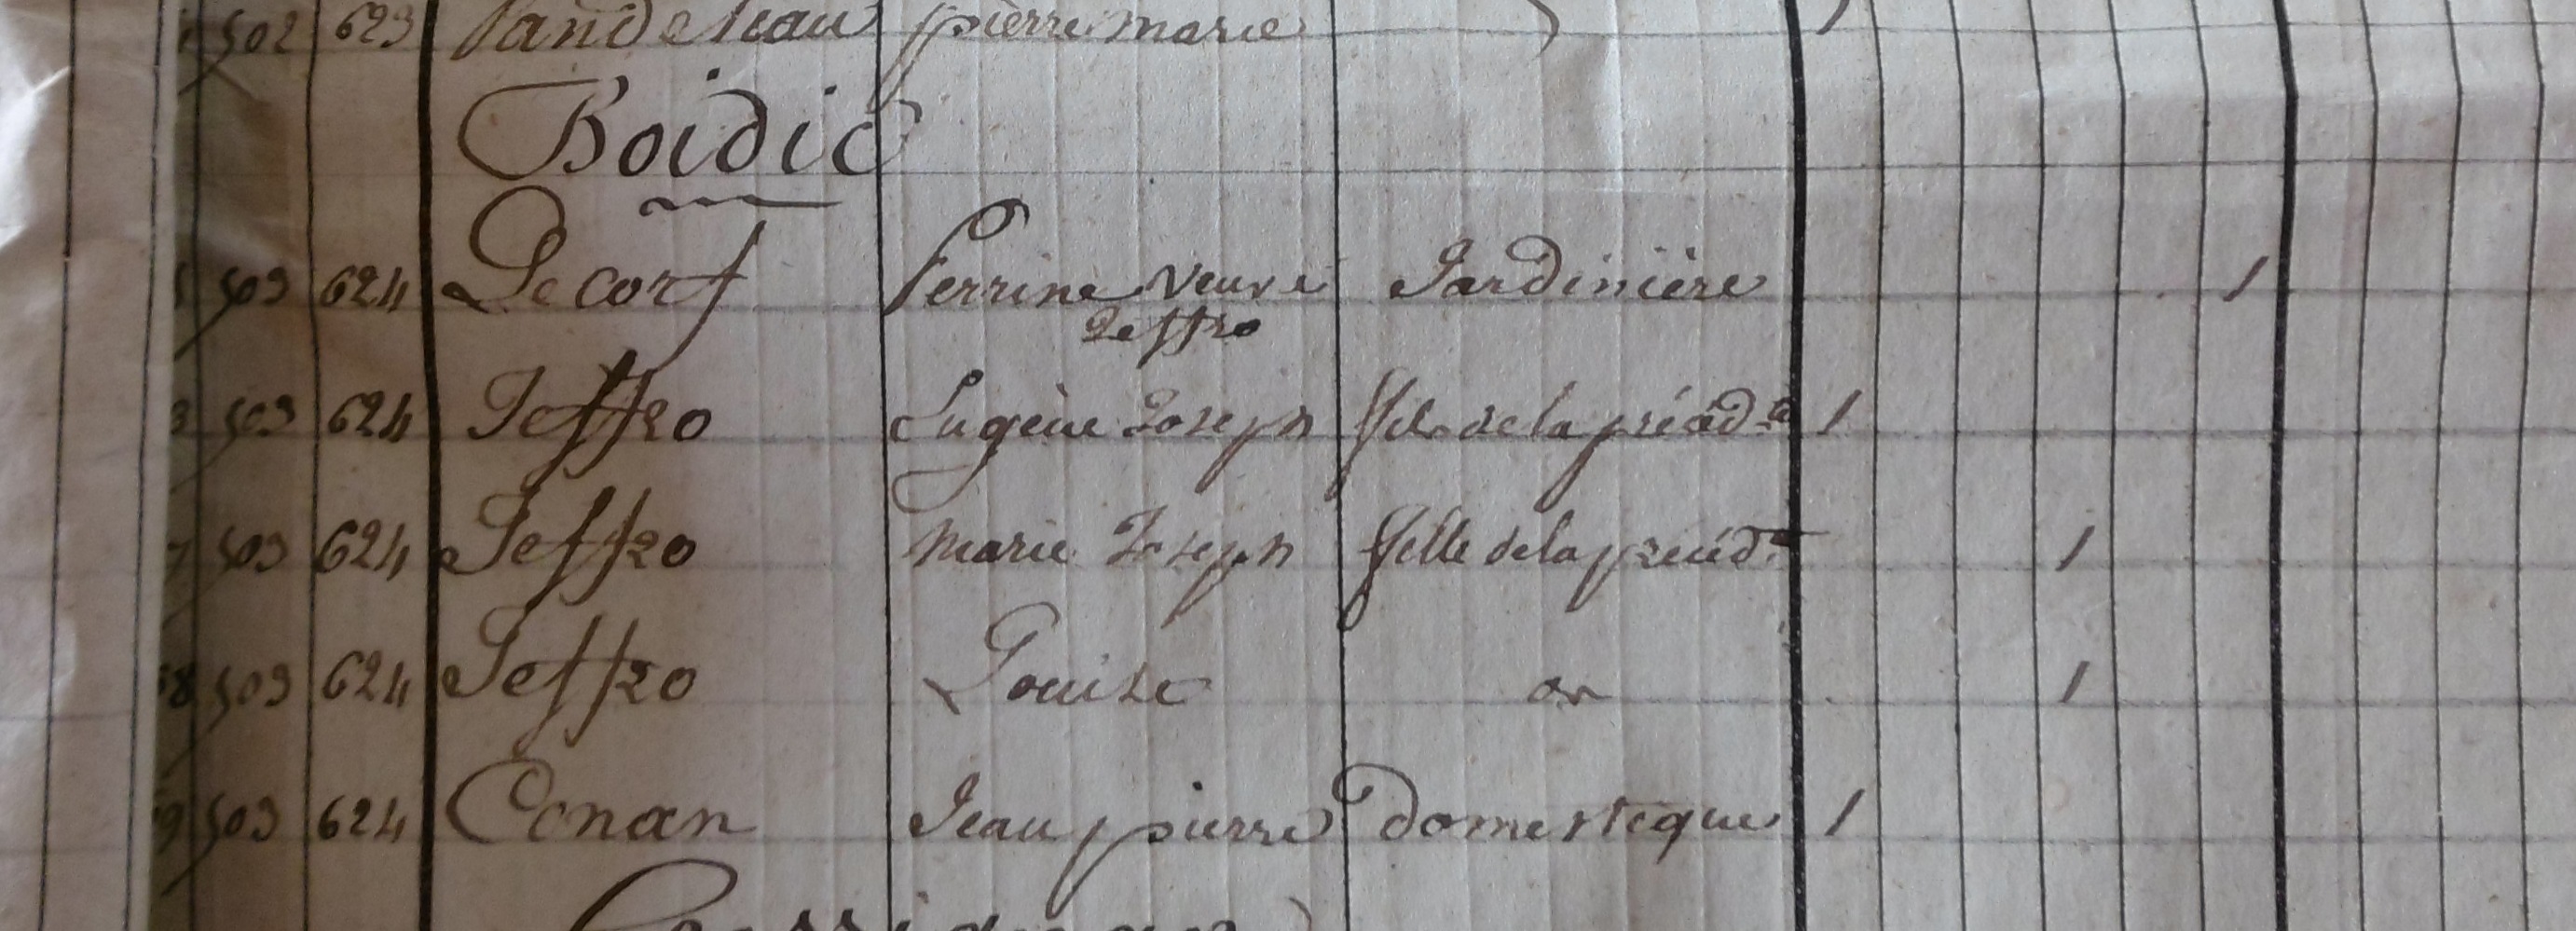 502 623 pierre marie
Boidic
503 624 Le corf Perrine veuve Jardinière 1
Jeffro
503 624 Jeffro Eugène Joseph fils de la précéd.te 1
7 503 624 Jeffro marie Joseph fille de la précéd.te 1
8 503 624 Jeffro Louise 1
9 503 624 Conan Jean pierre domestique 1